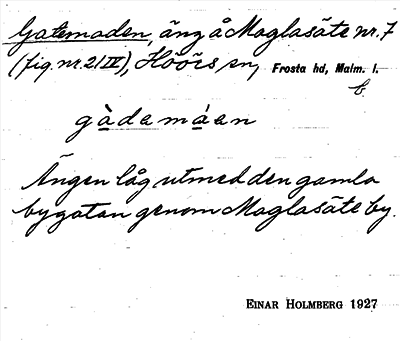 Gatemaden, äng å Maglasäte nr. 7
(fig. nr. 21 IV), Höörs sn, Frosta hd, Malm. l.
b.
gàdemáen
Ängen låg utmed den gamla
bygatan genom Maglasäte by.
EINAR HOLMBERG 1927